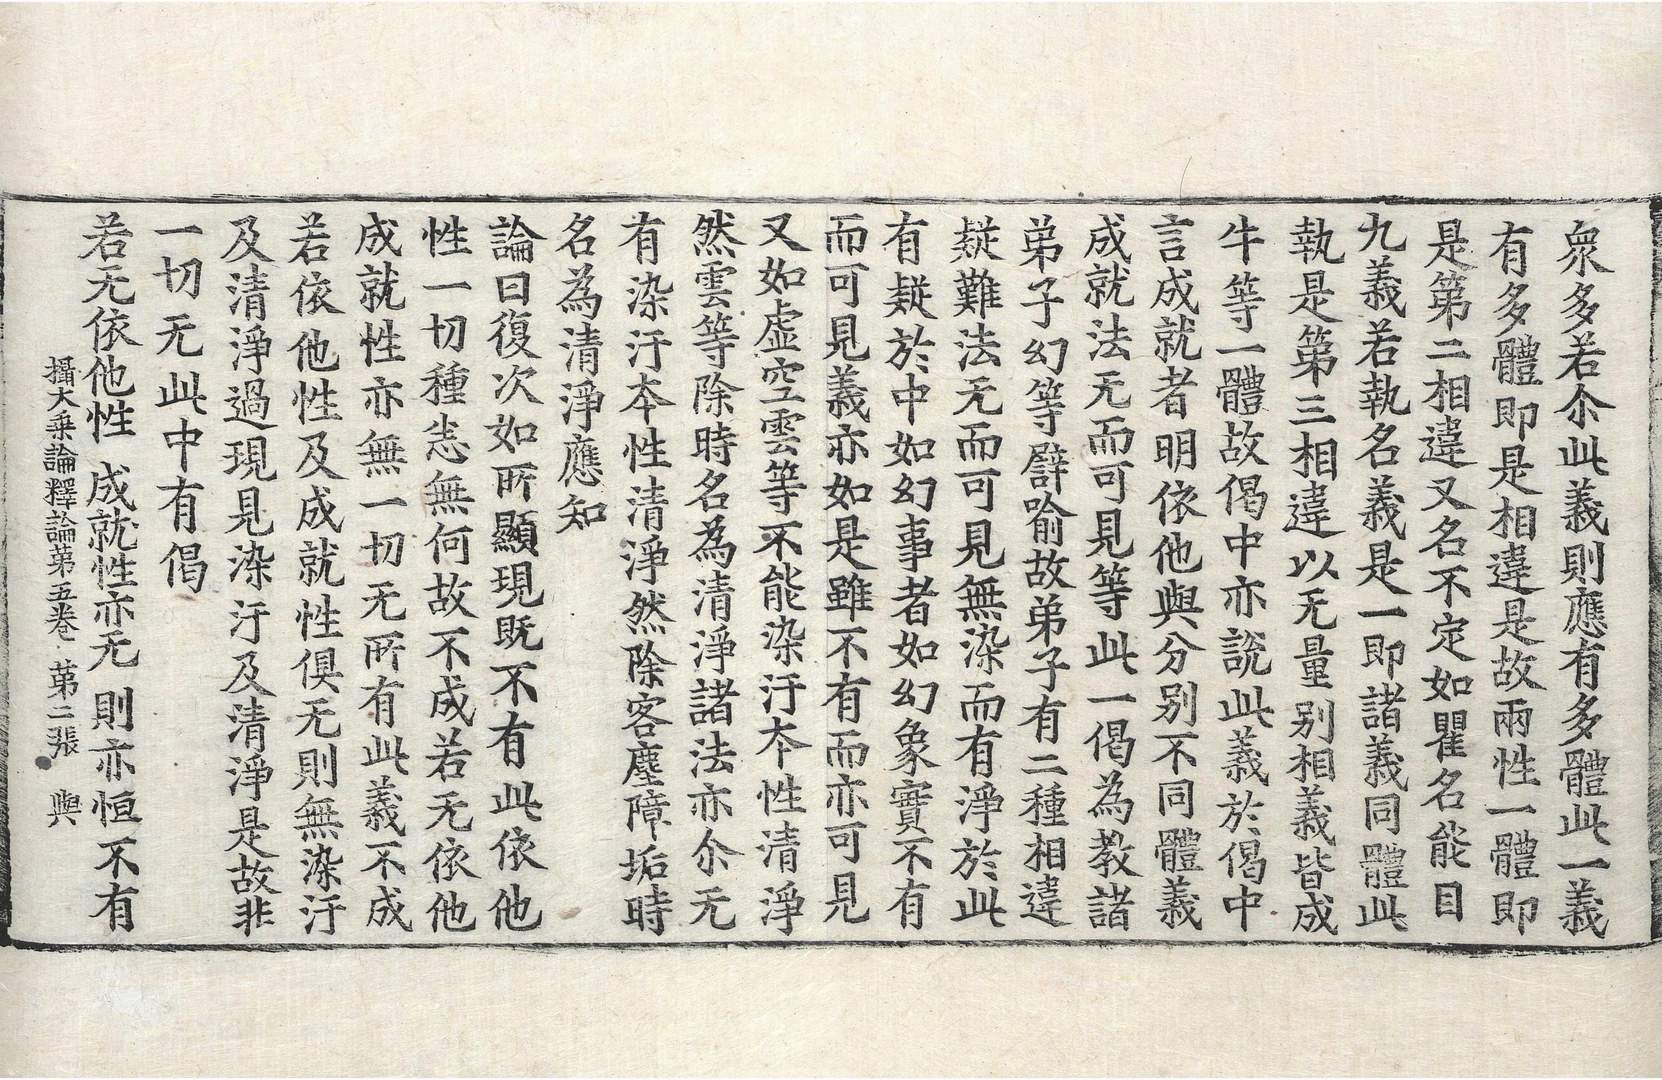 衆多若尒此義則應有多體此一義
有多體即是相違是故兩性一體即
是第二相違又名不定如瞿名能目
九義若執名義是一即諸義同體此
執是第三相違以无量別相義皆成
牛等一體故偈中亦說此義於偈中
言成就者明依他與分別不同體義
成就法无而可見等此一偈為教諸
弟子幻等譬喻故弟子有二種相違
疑難法无而可見無染而有淨於此
有疑於中如幻事者如幻象實不有
而可見義亦如是雖不有而亦可見
又如虛空雲等不能染汙本性清淨
然雲等除時名為清淨諸法亦尒无
有染汙本性清淨然除客塵障垢時
名為清淨應知
論曰復次如所顯現既不有此依他
性一切種恙無何故不成若无依他
成就性亦無一切无所有此義不成
若依他性及成就性俱无則無染汙
及清淨過現見染汙及清淨是故非
一切无此中有偈
若无依他性 成就性亦无 則亦恒不有
攝大乘論釋論第五卷 第二張 與